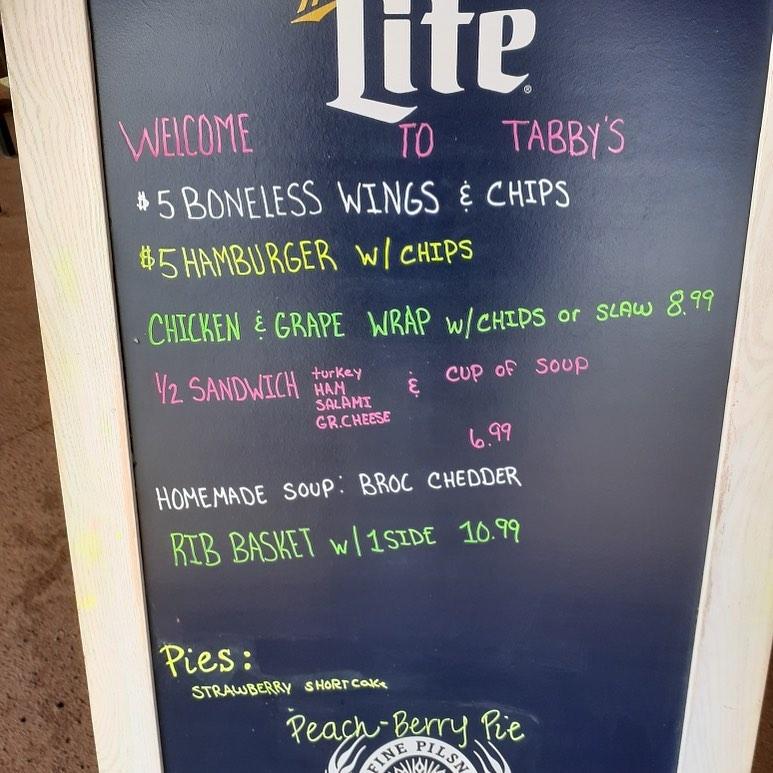 Lite
WELCOME TO TABBY'S
$5 BONELESS WINGS & CHIPS
$5 HAMBURGER W/ CHIPS
CHICKEN & GRAPE WRAP W/CHIPS or SLAW 8.99
1/2 SANDWICH turkey HAM SALAMI GR.CHEESE & CUP OF SOUP
6.99
HOMEMADE SOUP: BROC CHEDDER
RIB BASKET w/1 SIDE 10.99
Pies:
STRAWBERRY SHORTCAKE
Peach-Berry Pie
FINE PILSN